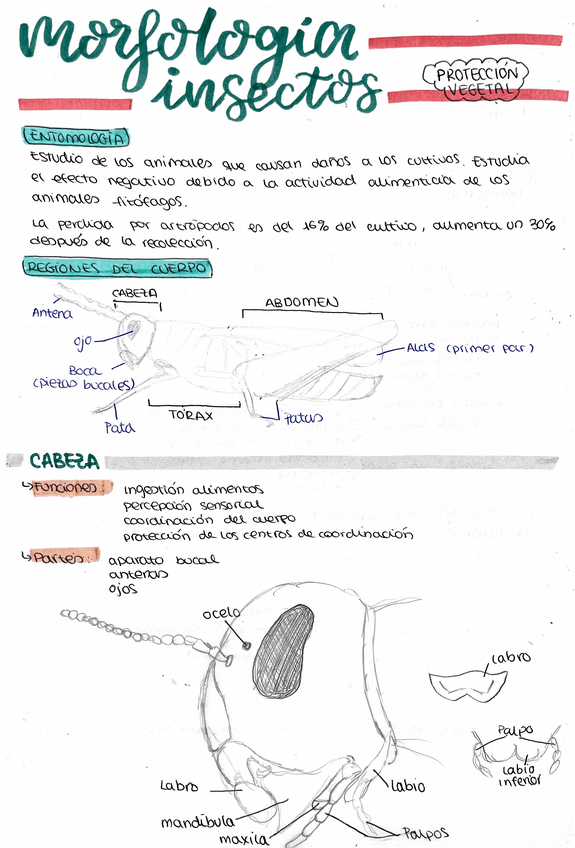 morfología
insectos
PROTECCIÓN
VEGETAL
ENTOMOLOGÍA
Estudio de los animales que causan daños a los cultivos. Estudia
el efecto negativo debido a la actividad alimenticia de los
animales fitófagos.
La perdida por artrópodos es del 16% del cultivo, aumenta un 30%
después de la recolección.
REGIONES DEL CUERPO
CABEZA
ABDOMEN
Antena
ojo
Alas (primer par)
Boca
(piezas bucales)
TÓRAX
Patas
Pata
CABEZA
↳ Funciones: ingestión alimentos
percepción sensorial
coordinación del cuerpo
protección de los centros de coordinación
↳ Partes: aparato bucal
antenas
ojos
ocelo
Labro
Palpo
Labio
inferior
Labro
Labio
mandíbula
maxila
Palpos